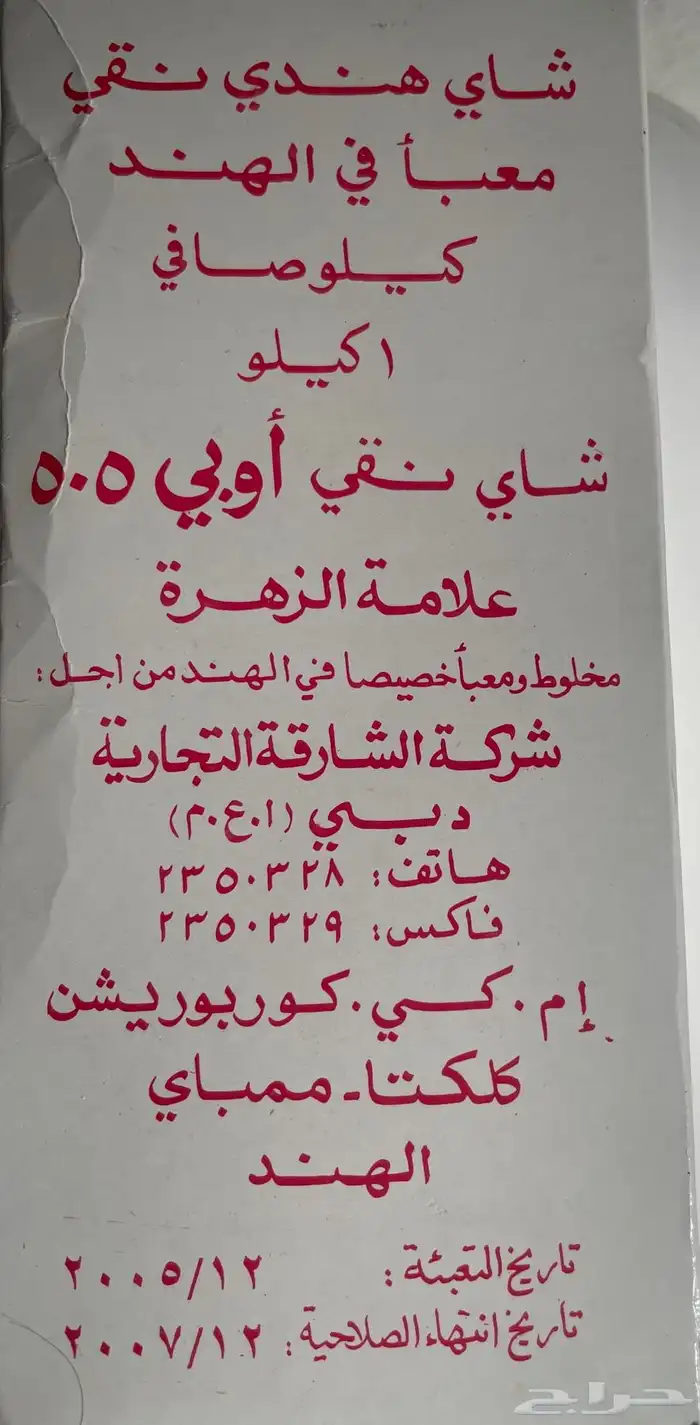 شاي هندي نقي
معبأ في الهند
كيلو صافي
١ كيلو
شاي نقي أوبي ٥٠٥
علامة الزهرة
مخلوط ومعبأ خصيصا في الهند من اجل:
شركة الشارقة التجارية
دبي (ا.ع.م)
هاتف: ٢٣٥٠٣٢٨
فاكس: ٢٣٥٠٣٢٩
إم. كي. كوربوريشن
كلكتا - ممباي
الهند
تاريخ التعبئة: ٢٠٠٥/١٢
تاريخ انتهاء الصلاحية: ٢٠٠٧/١٢
حراج